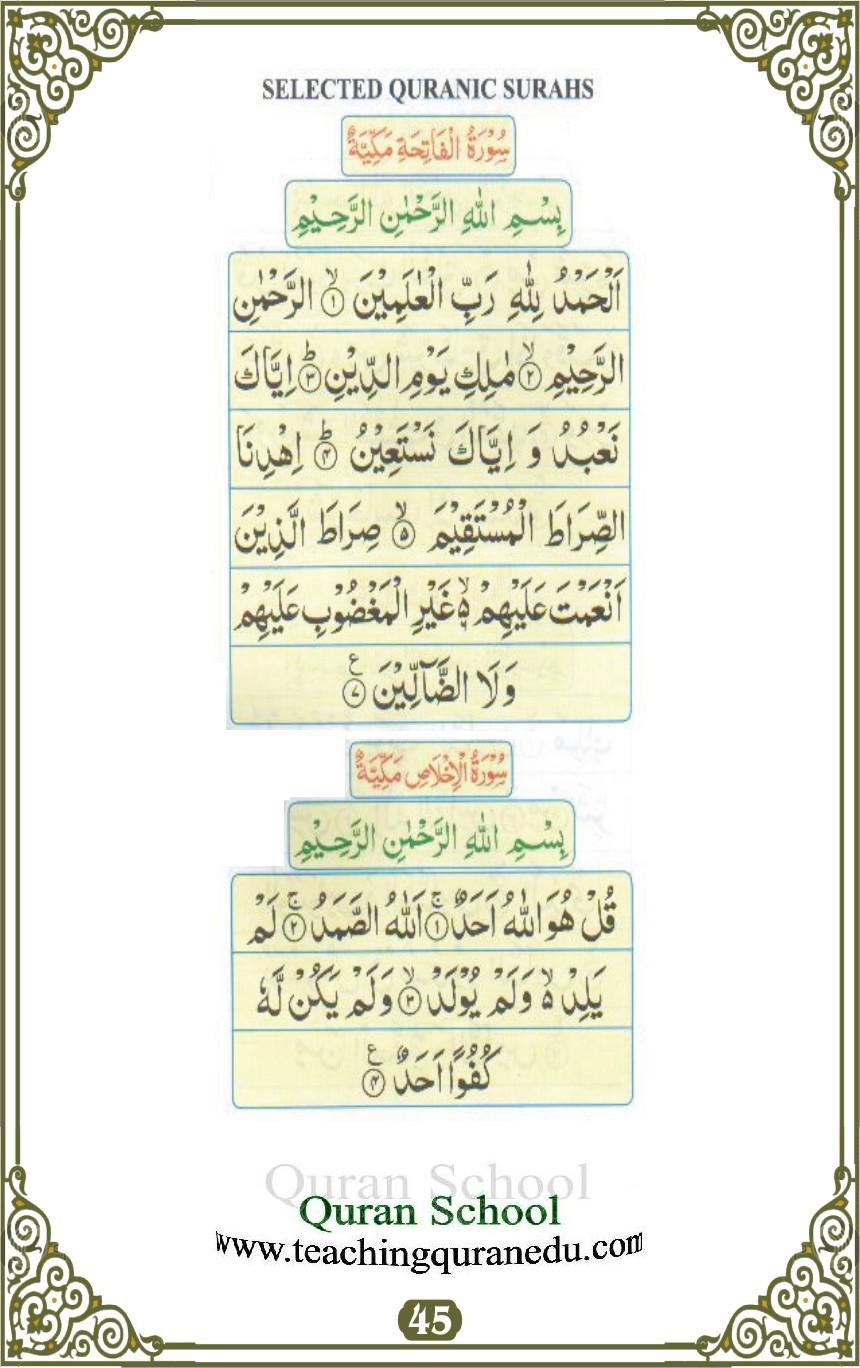 SELECTED QURANIC SURAHS
سُوْرَةُ الْفَاتِحَةِ مَكِّيَّةٌ
بِسْمِ اللهِ الرَّحْمٰنِ الرَّحِيْمِ
اَلْحَمْدُ لِلّٰهِ رَبِّ الْعٰلَمِيْنَ ۙ﴿۱﴾ الرَّحْمٰنِ
الرَّحِيْمِ ۙ﴿۲﴾ مٰلِكِ يَوْمِ الدِّيْنِ ؕ﴿۳﴾ اِيَّاكَ
نَعْبُدُ وَ اِيَّاكَ نَسْتَعِيْنُ ؕ﴿۴﴾ اِهْدِنَا
الصِّرَاطَ الْمُسْتَقِيْمَ ۙ﴿۵﴾ صِرَاطَ الَّذِيْنَ
اَنْعَمْتَ عَلَيْهِمْ ۙ۬ۦ غَيْرِ الْمَغْضُوْبِ عَلَيْهِمْ
وَلَا الضَّآلِّيْنَ ﴿۷﴾ ع
سُوْرَةُ الْاِخْلَاصِ مَكِّيَّةٌ
بِسْمِ اللهِ الرَّحْمٰنِ الرَّحِيْمِ
قُلْ هُوَ اللهُ اَحَدٌ ۚ﴿۱﴾ اَللهُ الصَّمَدُ ۚ﴿۲﴾ لَمْ
يَلِدْ ۙ۬ وَلَمْ يُوْلَدْ ۙ﴿۳﴾ وَلَمْ يَكُنْ لَّهٗ
كُفُوًا اَحَدٌ ﴿۴﴾ ع
Quran School
Quran School
www.teachingquranedu.com
45